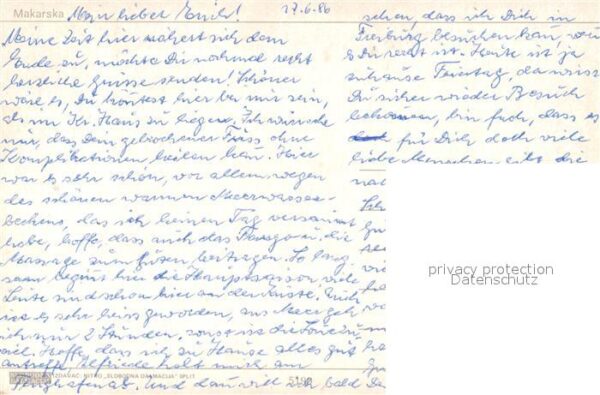 Makarska
Mein lieber Erich! 17.6.86
Meine Zeit hier nähert sich dem
Ende zu, möchte Dir nochmal recht
herzliche Grüsse senden! Schöner
wäre es, Du könntest hier bei mir sein,
als im Kr. Haus zu liegen. Ich wünsche
nur, dass Dein gebrochener Fuss ohne
Komplikationen heilen kan. Hier
war es sehr schön, vor allem wegen
des schönen warmen Meerwasser-
beckens, das ich keinen Tag versäumt
habe, hoffe, dass auch das Fango u. die
Massage zum guten beitragen. So lang
sam beginnt hier die Hauptsaison viele
Leute sind schon hier an der Küste. Auch
ist es sehr heiss geworden, ans Meer geh
ich nur 2 Stunden, sonst ist die
viel. Hoffe, dass ich zu Hause alles gut
antreffe, Elfriede holt mich am
Flughafen ab. Und dann will ich bald Da
sehen, dass ich Dich in
Freiburg besuchen kan, wen
es Dir recht ist. Heute ist ja
zuhause Feiertag, da wirst
Du sicher wieder Besuch
bekommen, bin froh, dass es
für Dich doch viele
liebe Menschen gibt die
privacy protection
Datenschutz
IZDAVAČ: NIŠRO „SLOBODNA DALMACIJA" SPLIT